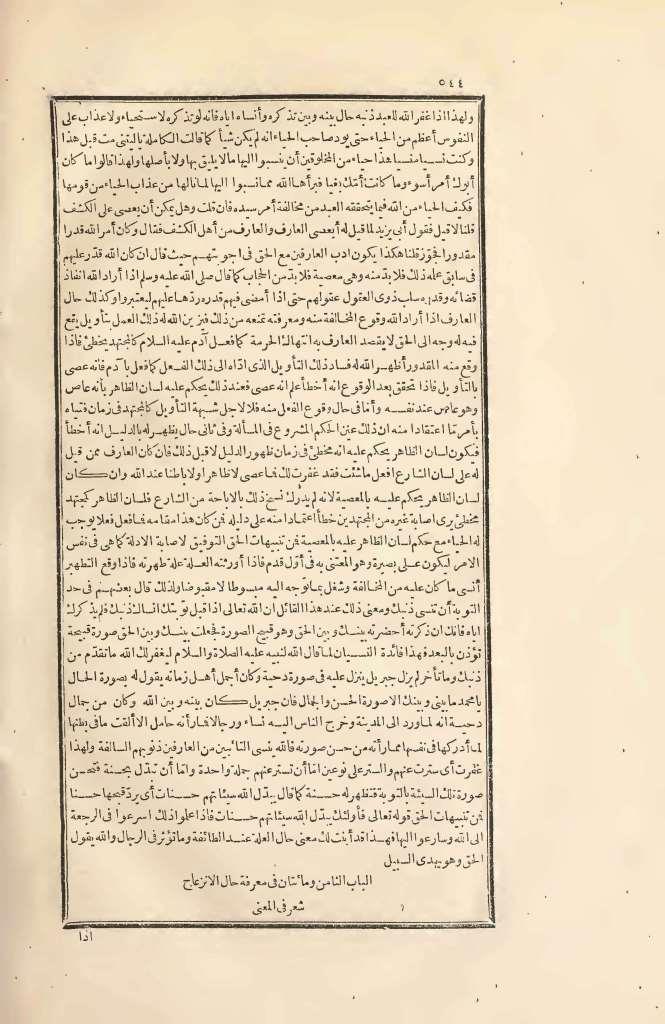 ٥٤٤
ولهذا اذا غفر الله للعبد ذنبه حال بينه وبين تذكره وأنساه اياه فانه لو تذكره لاستحياء ولا عذاب على
النفوس أعظم من الحياء حتى يود صاحب الحياء انه لم يكن شيأ كما قالت الكاملة ياليتنى مت قبل هذا
وكنت نسيا منسيا هذا حياء من المخلوقين أن ينسبوا اليها ما لا يليق بها ولا بأصلها ولهذا قالوا ما كان
أبوك امر أسوء وما كانت أمك بغيا فبرأها الله مما نسبوا اليها لما نالها من عذاب الحياء من قومها
فكيف الحياء من الله فيما يتحققه العبد من مخالفة أمر سيده فان قلت وهل يمكن أن يعصى على الكشف
قلنا لا قيل فقول أبى يزيد لما قيل له أيعصى العارف والعارف من أهل الكشف فقال وكان أمر الله قدرا
مقدورا فجوّز قلنا هكذا يكون ادب العارفين مع الحق فى اجوبتهم حيث قال ان كان الله قدّر عليهم
فى سابق علمه ذلك فلا بدّ منه وهى معصية فلا بدّ من الحجاب كما قال صلى الله عليه وسلم اذا أراد الله انفاذ
قضائه وقدره سلب ذوى العقول عقولهم حتى اذا أمضى فيهم قدره ردّها عليهم ليعتبروا وكذلك حال
العارف اذا أراد الله وقوع المخالفة منه ومعرفته تمنعه من ذلك فيزين الله له ذلك العمل بتأويل يقع
فيه له وجه الى الحق لا يقصد العارف به انتهاك الحرمة كما فعل آدم عليه السلام كالمجتهد يخطئ فاذا
وقع منه المقدور أظهر الله له فساد ذلك التأويل الذى ادّاه الى ذلك الفعل كما فعل بآدم فانه عصى
بالتأويل فاذا تحقق بعد الوقوع انه أخطأ علم انه عصى فعند ذلك يحكم عليه لسان الظاهر بأنه عاص
وهو عاص عند نفسه وأما فى حال وقوع الفعل منه فلا لاجل شبهة التأويل كالمجتهد فى زمان فتياه
بأمر تما اعتقادا منه ان ذلك عين الحكم المشروع فى المسألة وفى ثانى حال يظهر له بالدليل انه أخطأ
فيكون لسان الظاهر يحكم عليه انه مخطئ فى زمان ظهور الدليل لا قبل ذلك فان كان العارف ممن قيل
له على لسان الشارع افعل ما شئت فقد غفرت لك فما عصى لا ظاهرا ولا باطنا عند الله وان كان
لسان الظاهر يحكم عليه بالمعصية لانه لم يدرك نسخ ذلك بالاباحة من الشارع فلسان الظاهر كمجتهد
مخطئ يرى اصابة غيره من المجتهدين خطأ اعتمادا منه على دليله فمن كان هذا مقامه فما فعل فعلا يوجب
له الحياء مع حكم لسان الظاهر عليه بالمعصية فمن تنبيهات الحق التوفيق لاصابة الادلة كما هى فى نفس
الامر ليكون على بصيرة وهو المعتنى به فى أول قدم فاذا أورثته العلة علة طهرته فاذا وقع التطهير
أنسى ما كان عليه من المخالفة وشغل بما توجه اليه مبسوطا لا مقبوضا ولذلك قال بعضهم فى حد
التوبة أن تنسى ذنبك ومعنى ذلك عند هذا القائل ان الله تعالى اذا قبل توبتك انساك ذنبك فلم يذكرك
اياه فانك ان ذكرته أحضرته بينك وبين الحق وهو قبيح الصورة فجعلت بينك وبين الحق صورة قبيحة
تؤذن بالبعد فهذا فائدة النسيان لما قال الله لنبيه عليه الصلاة والسلام ليغفر لك الله ما تقدّم من
ذنبك وما تأخر لم يزل جبريل ينزل عليه فى صورة دحية وكان أجمل أهل زمانه يقول له بصورة الحال
يا محمد ما بينى وبينك الا صورة الحسن والجمال فان جبريل كان بينه وبين الله وكان من جمال
دحية انه لما ورد الى المدينة وخرج الناس اليه نساء ورجالا فما رأته حامل الا ألقت ما فى بطنها
لما أدركها فى نفسها مما رأته من حسن صورته فالله ينسى التائبين من العارفين ذنوبهم السالفة ولهذا
غفرت أى سترت عنهم والستر على نوعين امّا أن تستر عنهم جملة واحدة وامّا أن تبدّل بحسنة فتحسن
صورة تلك السيئة بالتوبة فتظهر له حسنة كما قال يبدّل الله سيئاتهم حسنات أى يردّ قبحها حسنا
فمن تنبيهات الحق قوله تعالى فأولئك يبدّل الله سيئاتهم حسنات فاذا علموا ذلك اسرعوا فى الرجعة
الى الله وسارعوا اليها فهذا قد أبنت لك معنى حال العلة عند الطائفة وما تؤثر فى الرجال والله يقول
الحق وهو يهدى السبيل
الباب الثامن ومائتان فى معرفة حال الانزعاج
شعر فى المعنى
اذا